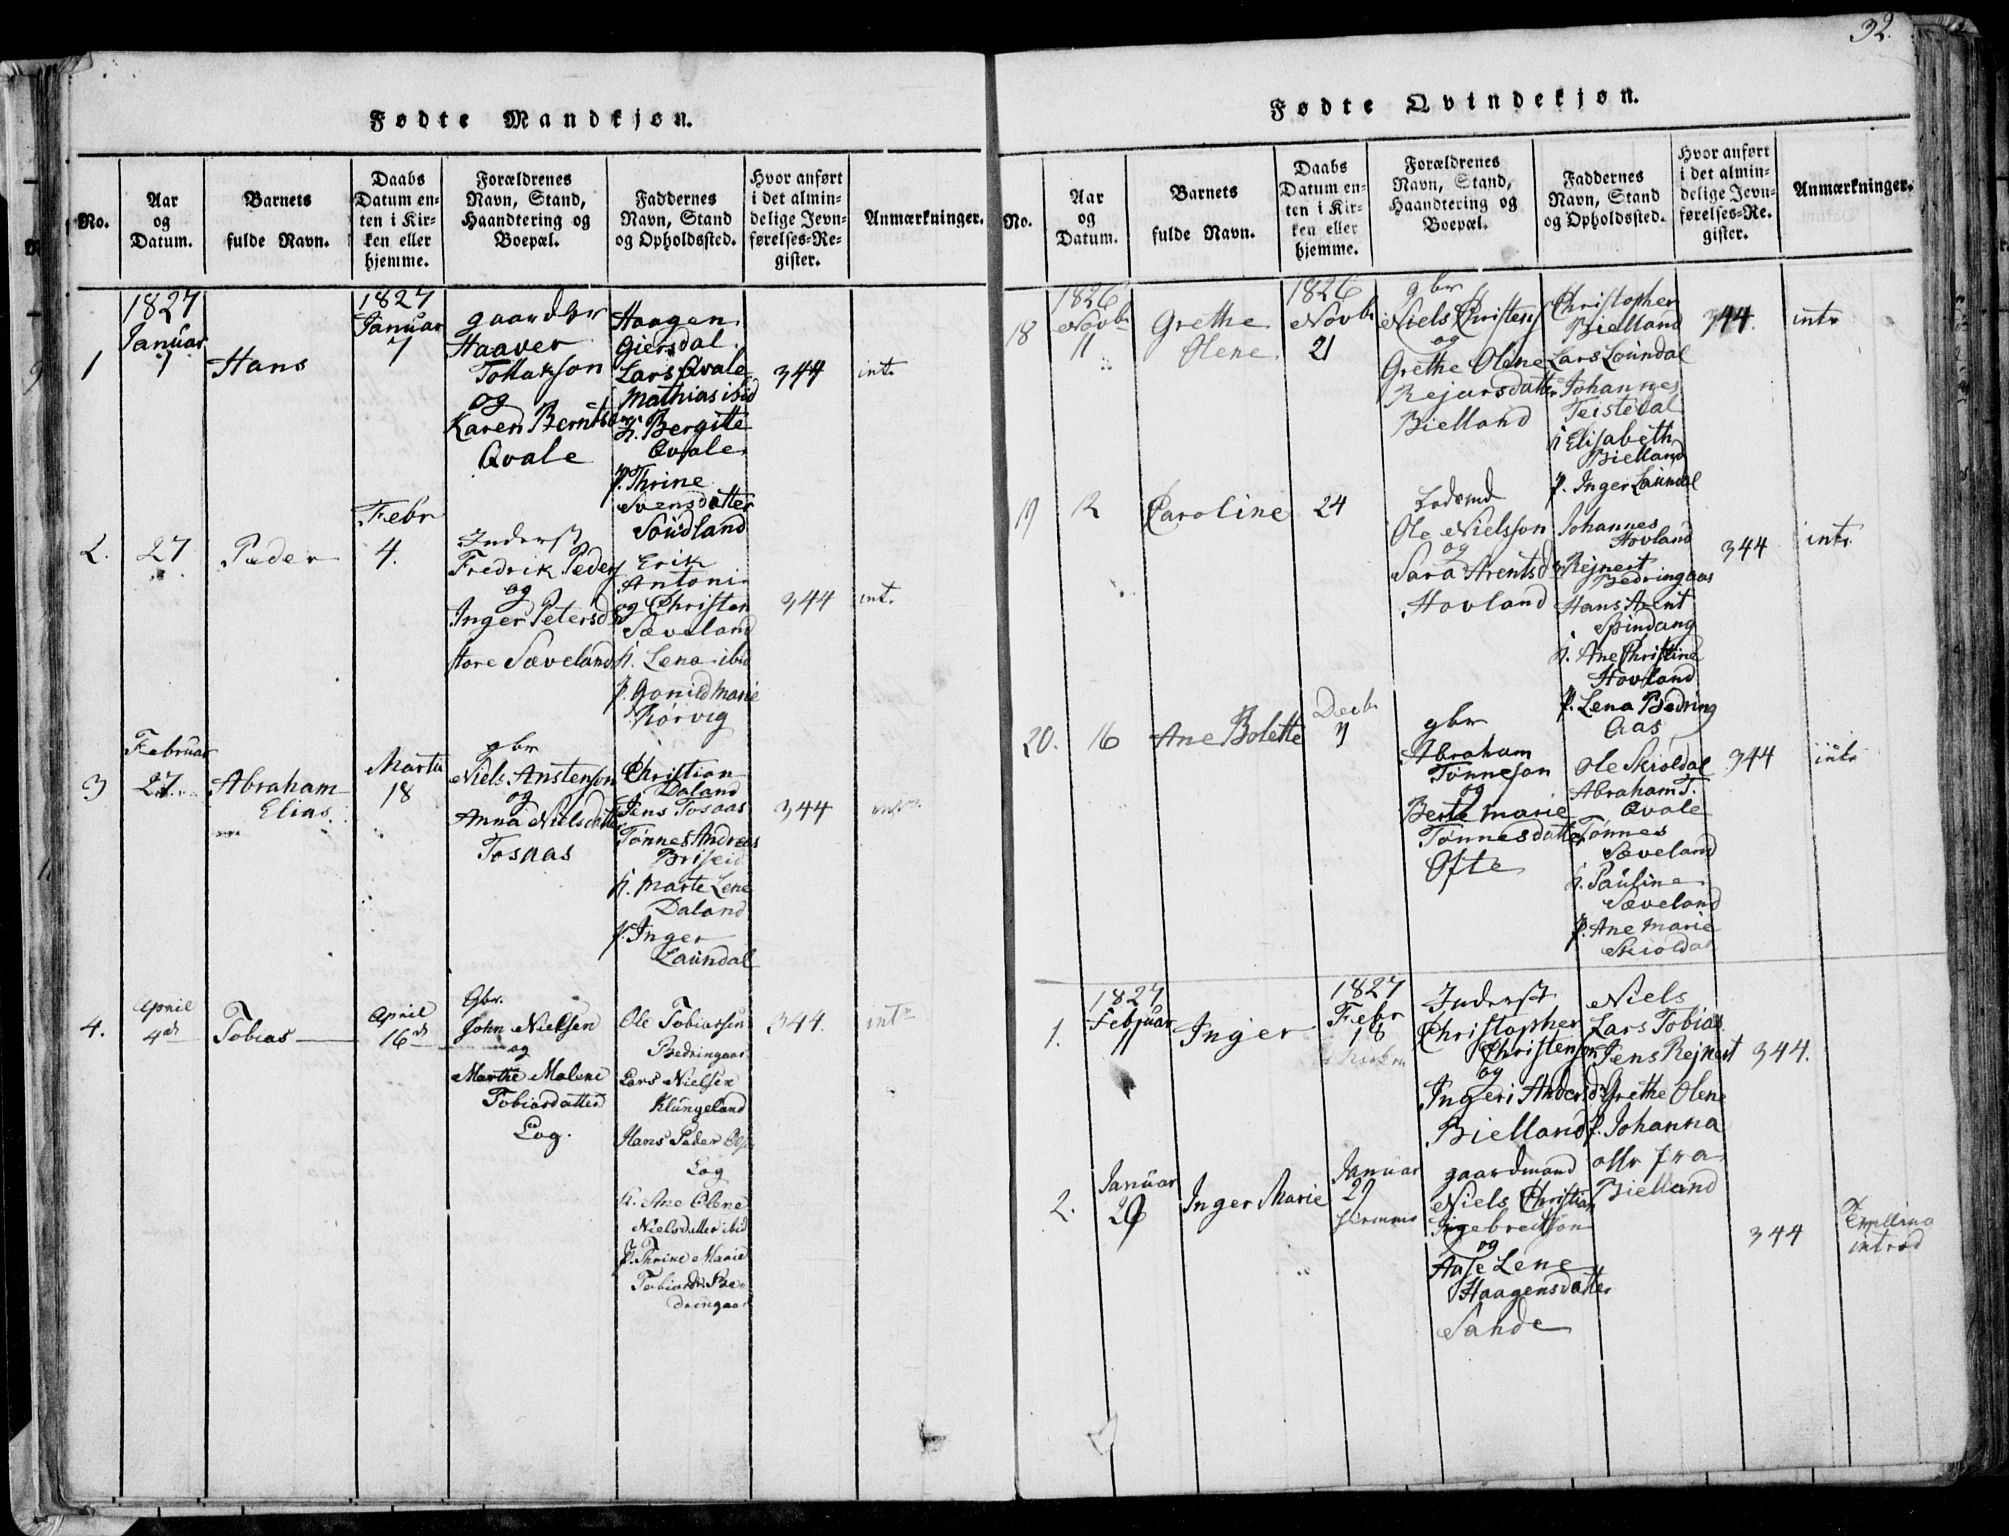 32.
Fødte Mandkjøn.
No.
Aar
og
Datum.
Barnets
fulde Navn.
Daabs
Datum en-
ten i Kir-
ken eller
hjemme.
Forældrenes
Navn, Stand,
Haandtering og
Boepæl.
Faddernes
Navn, Stand
og Opholdssted.
Hvor anført
i det almin-
delige Jevn-
førelses-Re-
gister.
Anmærkninger.
1
1827
Januar
7
Hans
1827
Januar
7
Haaver
Tollakson
og
Karen Berntsd
Qvale
Haagen
Giersdal
Lars Qvale
Mathias ibid
Bergitte
Qvale
p. Thrine
Svensdatter
Soudland
344
int.
2.
27
Peder
Febr
4.
Inderst
Fredrik Peders
og
Inger Petersd
store Sæveland
Erik
Antoni
og Christen
Sæveland
h. Lena ibid
p. Gonild Marie
Rørvig
344
int.
3
Februar
27
Abraham
Elias
Martii
18
gbr
Niels Anstenson
og
Anna Nielsdatter
Tosaas
Christian
Daland
Jens Tosaas
Tønnes Andreas
Briseid
h. Marte Lene
Daland
p. Inger
Laundal
344
4.
April
4de
Tobias
April
16de
Gbr.
John Nielsen
og
Marthe Malene
Tobiasdatter
Log.
Ole Tobiassen
Bedringaas
Lars Nielsen
Klungeland
Hans Peder
Log
h. Ane Olene
Nielsdatter ibid
p. Thrine Marie
Tobiasd. Be-
dringaas
344.
intr
Fødte Qvindekjøn.
No.
Aar
og
Datum.
Barnets
fulde Navn.
Daabs
Datum en-
ten i Kir-
ken eller
hjemme.
Forældrenes
Navn, Stand,
Haandtering og
Boepæl.
Faddernes
Navn, Stand
og Opholdssted.
Hvor anført
i det almin-
delige Jevn-
førelses-Re-
gister.
Anmærkninger.
18
1826
Novbr
11
Grethe
Olene
1826
Novbr
21
gbr
Niels Christens
og
Grethe Olene
Rejarsdatter
Bielland
Christopher
Bielland
Lars Laundal
Johannes
Teistedal
h Elisabeth
Bielland
p. Inger Laundal
344.
intr
19
12
Caroline
24
Ole Nielsson
og
Sara Arentsd
Hovland
Johannes
Hovland
Rejnert
Bedringaas
Hans Arnt
Spindang
h. Ane Christine
Hovland
p. Lena Bedring
Aas
344
intr
20.
16
Ane Bolette
Decbr
7
gbr
Abraham
Tønneson
og
Berte Marie
Tønnesdatter
Ofte
Ole Skioldal
Abraham T.
Qvale
Tønnes
Sæveland
h. Pauline
Sæveland
p. Ane Marie
Skioldal
344
intr
1.
1827
Februar
11
Inger
1827
Febr
18
i Kirken
Inderst
Christopher
Christenson
og
Ingeri Andersd
Bielland
Niels
Lars Tobias
Jens Rejnert
Grethe Olene
p. Johanna
alle fra
Bielland
344.
2.
Januar
26
Inger Marie
Januar
29
hiemme
gaardmand
Niels Christian
Ingebretson
og
Aase Lene
Haagensdatter
Sande
344
introd